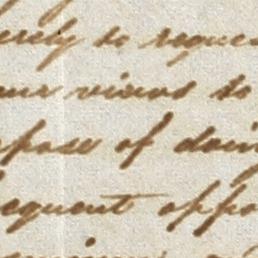 erely to reques
our views to
pose of doin
equent oppo